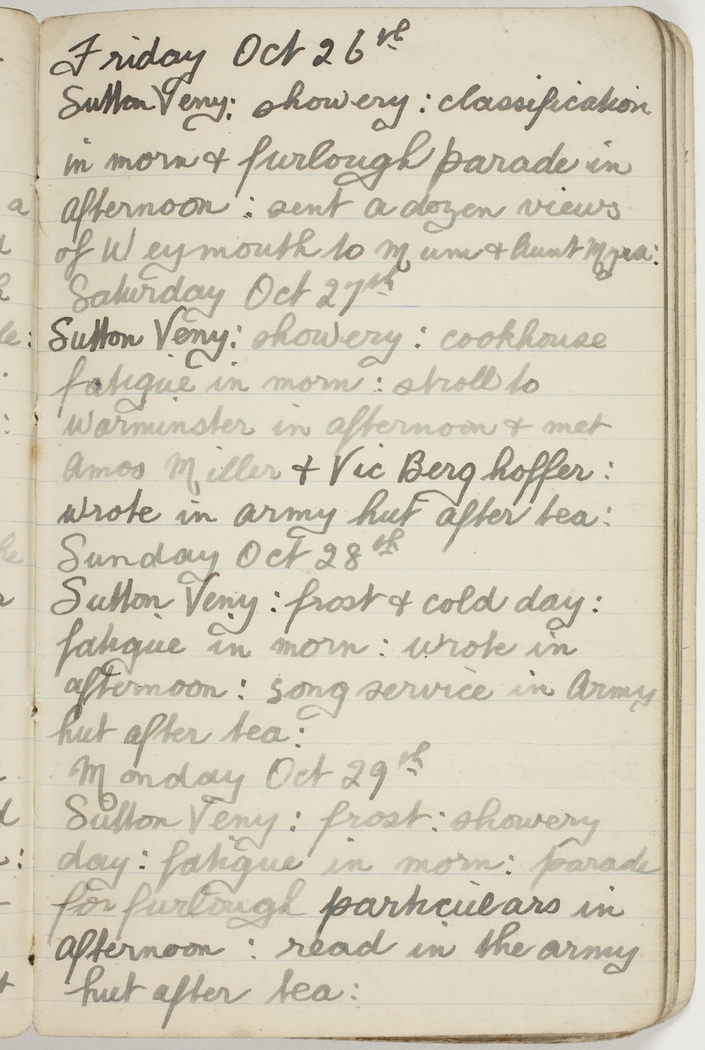 Friday Oct 26th
Sutton Veny: showery: classification
in morn & furlough parade in
afternoon: sent a dozen views
of Weymouth to Mum & Aunt Myra:
Saturday Oct 27th
Sutton Veny: showery: cookhouse
fatigue in morn: stroll to
Warminster in afternoon & met
Amos Miller & Vic Berghoffer:
wrote in army hut after tea:
Sunday Oct 28th
Sutton Veny: frost & cold day:
fatigue in morn: wrote in
afternoon: song service in Army
hut after tea:
Monday Oct 29th
Sutton Veny: frost: showery
day: fatigue in morn: parade
for furlough particulars in
afternoon: read in the army
hut after tea: